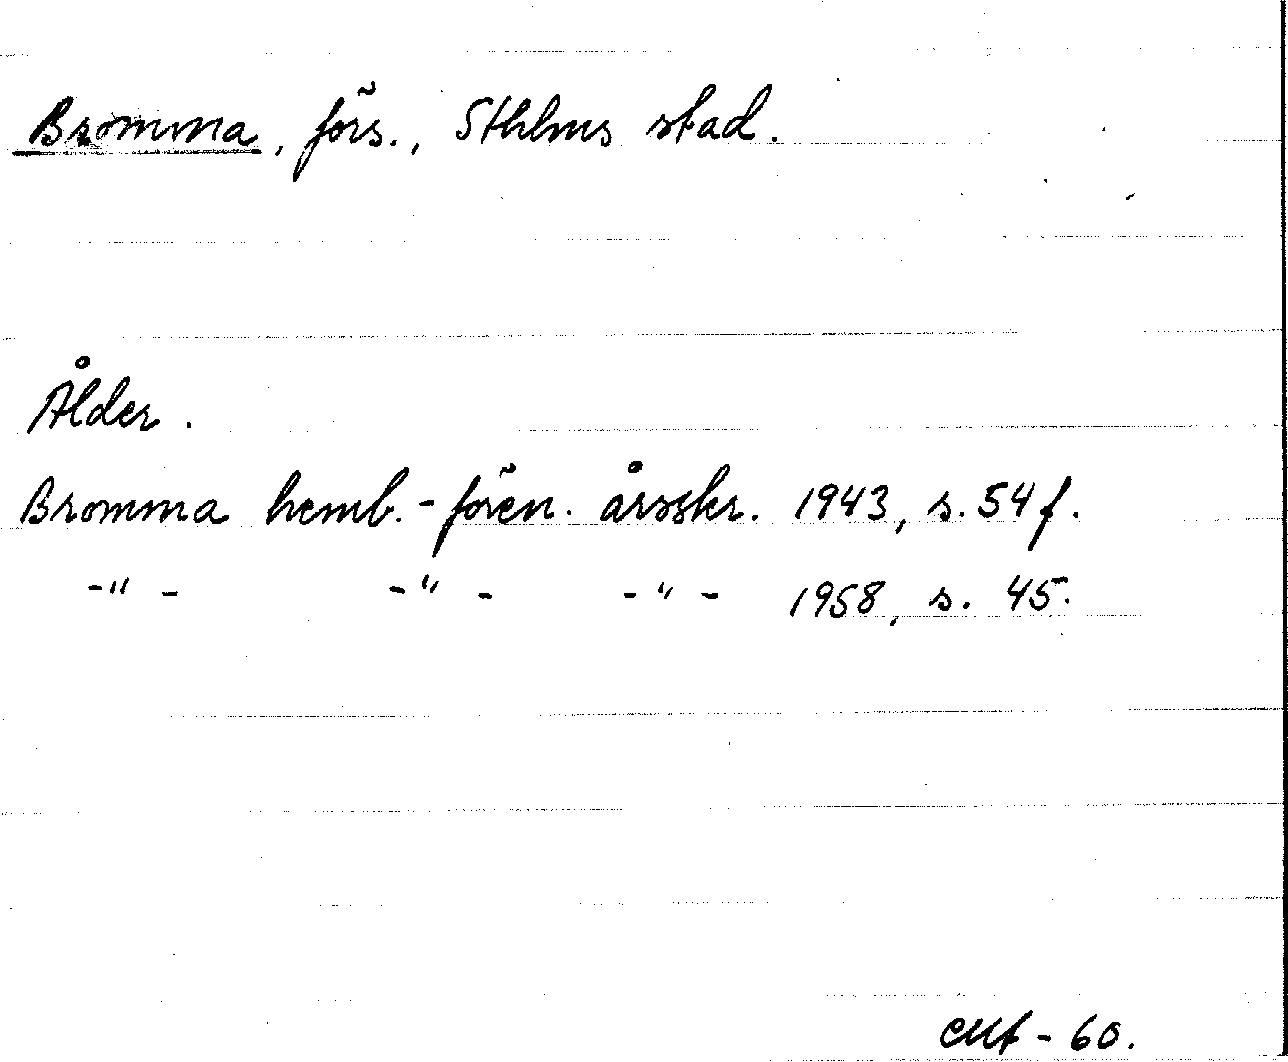 Bromma, förs., Sthlms stad.
Ålder.
Bromma hemb.-fören. årsskr. 1943, s. 54 f.
-"- -"- -"- 1958, s. 45.
- 60.